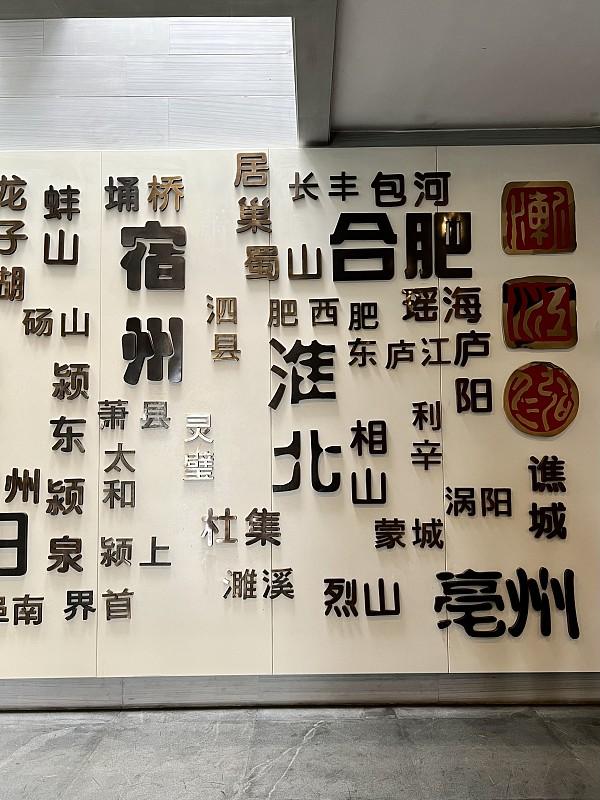 龙子湖
蚌山
埇桥
居巢
长丰
包河
宿州
蜀山
合肥
砀山
泗县
肥西
肥东
瑶海
颍东
淮北
庐江
庐阳
萧县
灵璧
太和
相山
利辛
州
颍泉
涡阳
谯城
杜集
蒙城
颍上
濉溪
烈山
亳州
南
界首